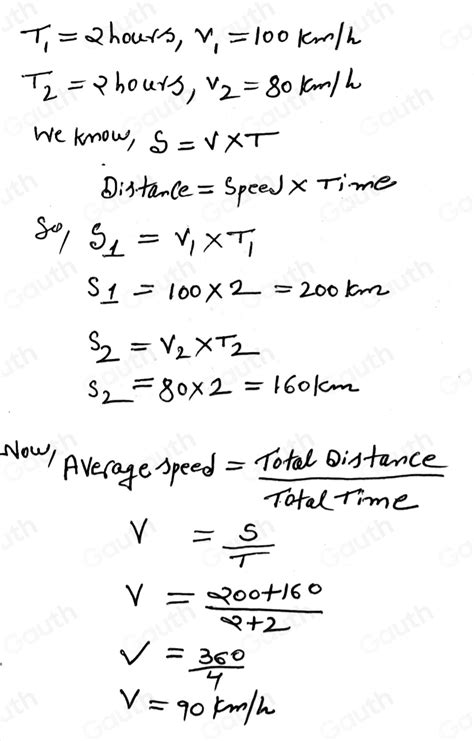 T₁ = 2 hours, V₁ = 100 km/h
T₂ = 2 hours, V₂ = 80 km/h
We know, S = V × T
Distance = Speed × Time
So, S₁ = V₁ × T₁
S₁ = 100 × 2 = 200 km
S₂ = V₂ × T₂
S₂ = 80 × 2 = 160 km
Now, Average speed = Total Distance / Total Time
V = S / T
V = 200+160 / 2+2
V = 360 / 4
V = 90 km/h
Gauth